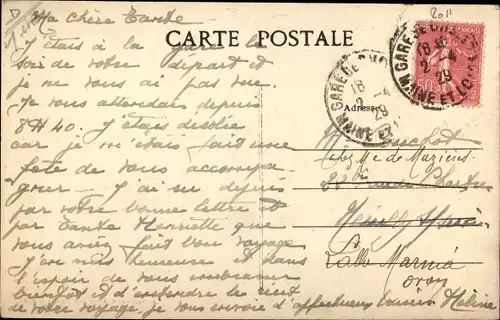 Ma chère Tante
CARTE POSTALE
J'étais à la gare le
soir de votre départ et
je ne vous ai pas vue.
Je vous attendais depuis
8H40. J'étais désolée
car je m'étais fait une
fête de vous accompa-
gner - J'ai su depuis
par votre bonne lettre et
par Tante Henriette que
vous aviez fait bon voyage
J'en suis heureuse et dans
l'espoir de vous embrasser
bientôt et d'entendre le récit
de votre voyage je vous envoie d'affectueux baisers Hélène
GARE DE
18
2 -4
29
MAINE ET
GARE DE
18
2 -4
29
MAINE ET LOIRE
Adresse
chez Me de
22
Neuilly
Lalla Marnia
Oran